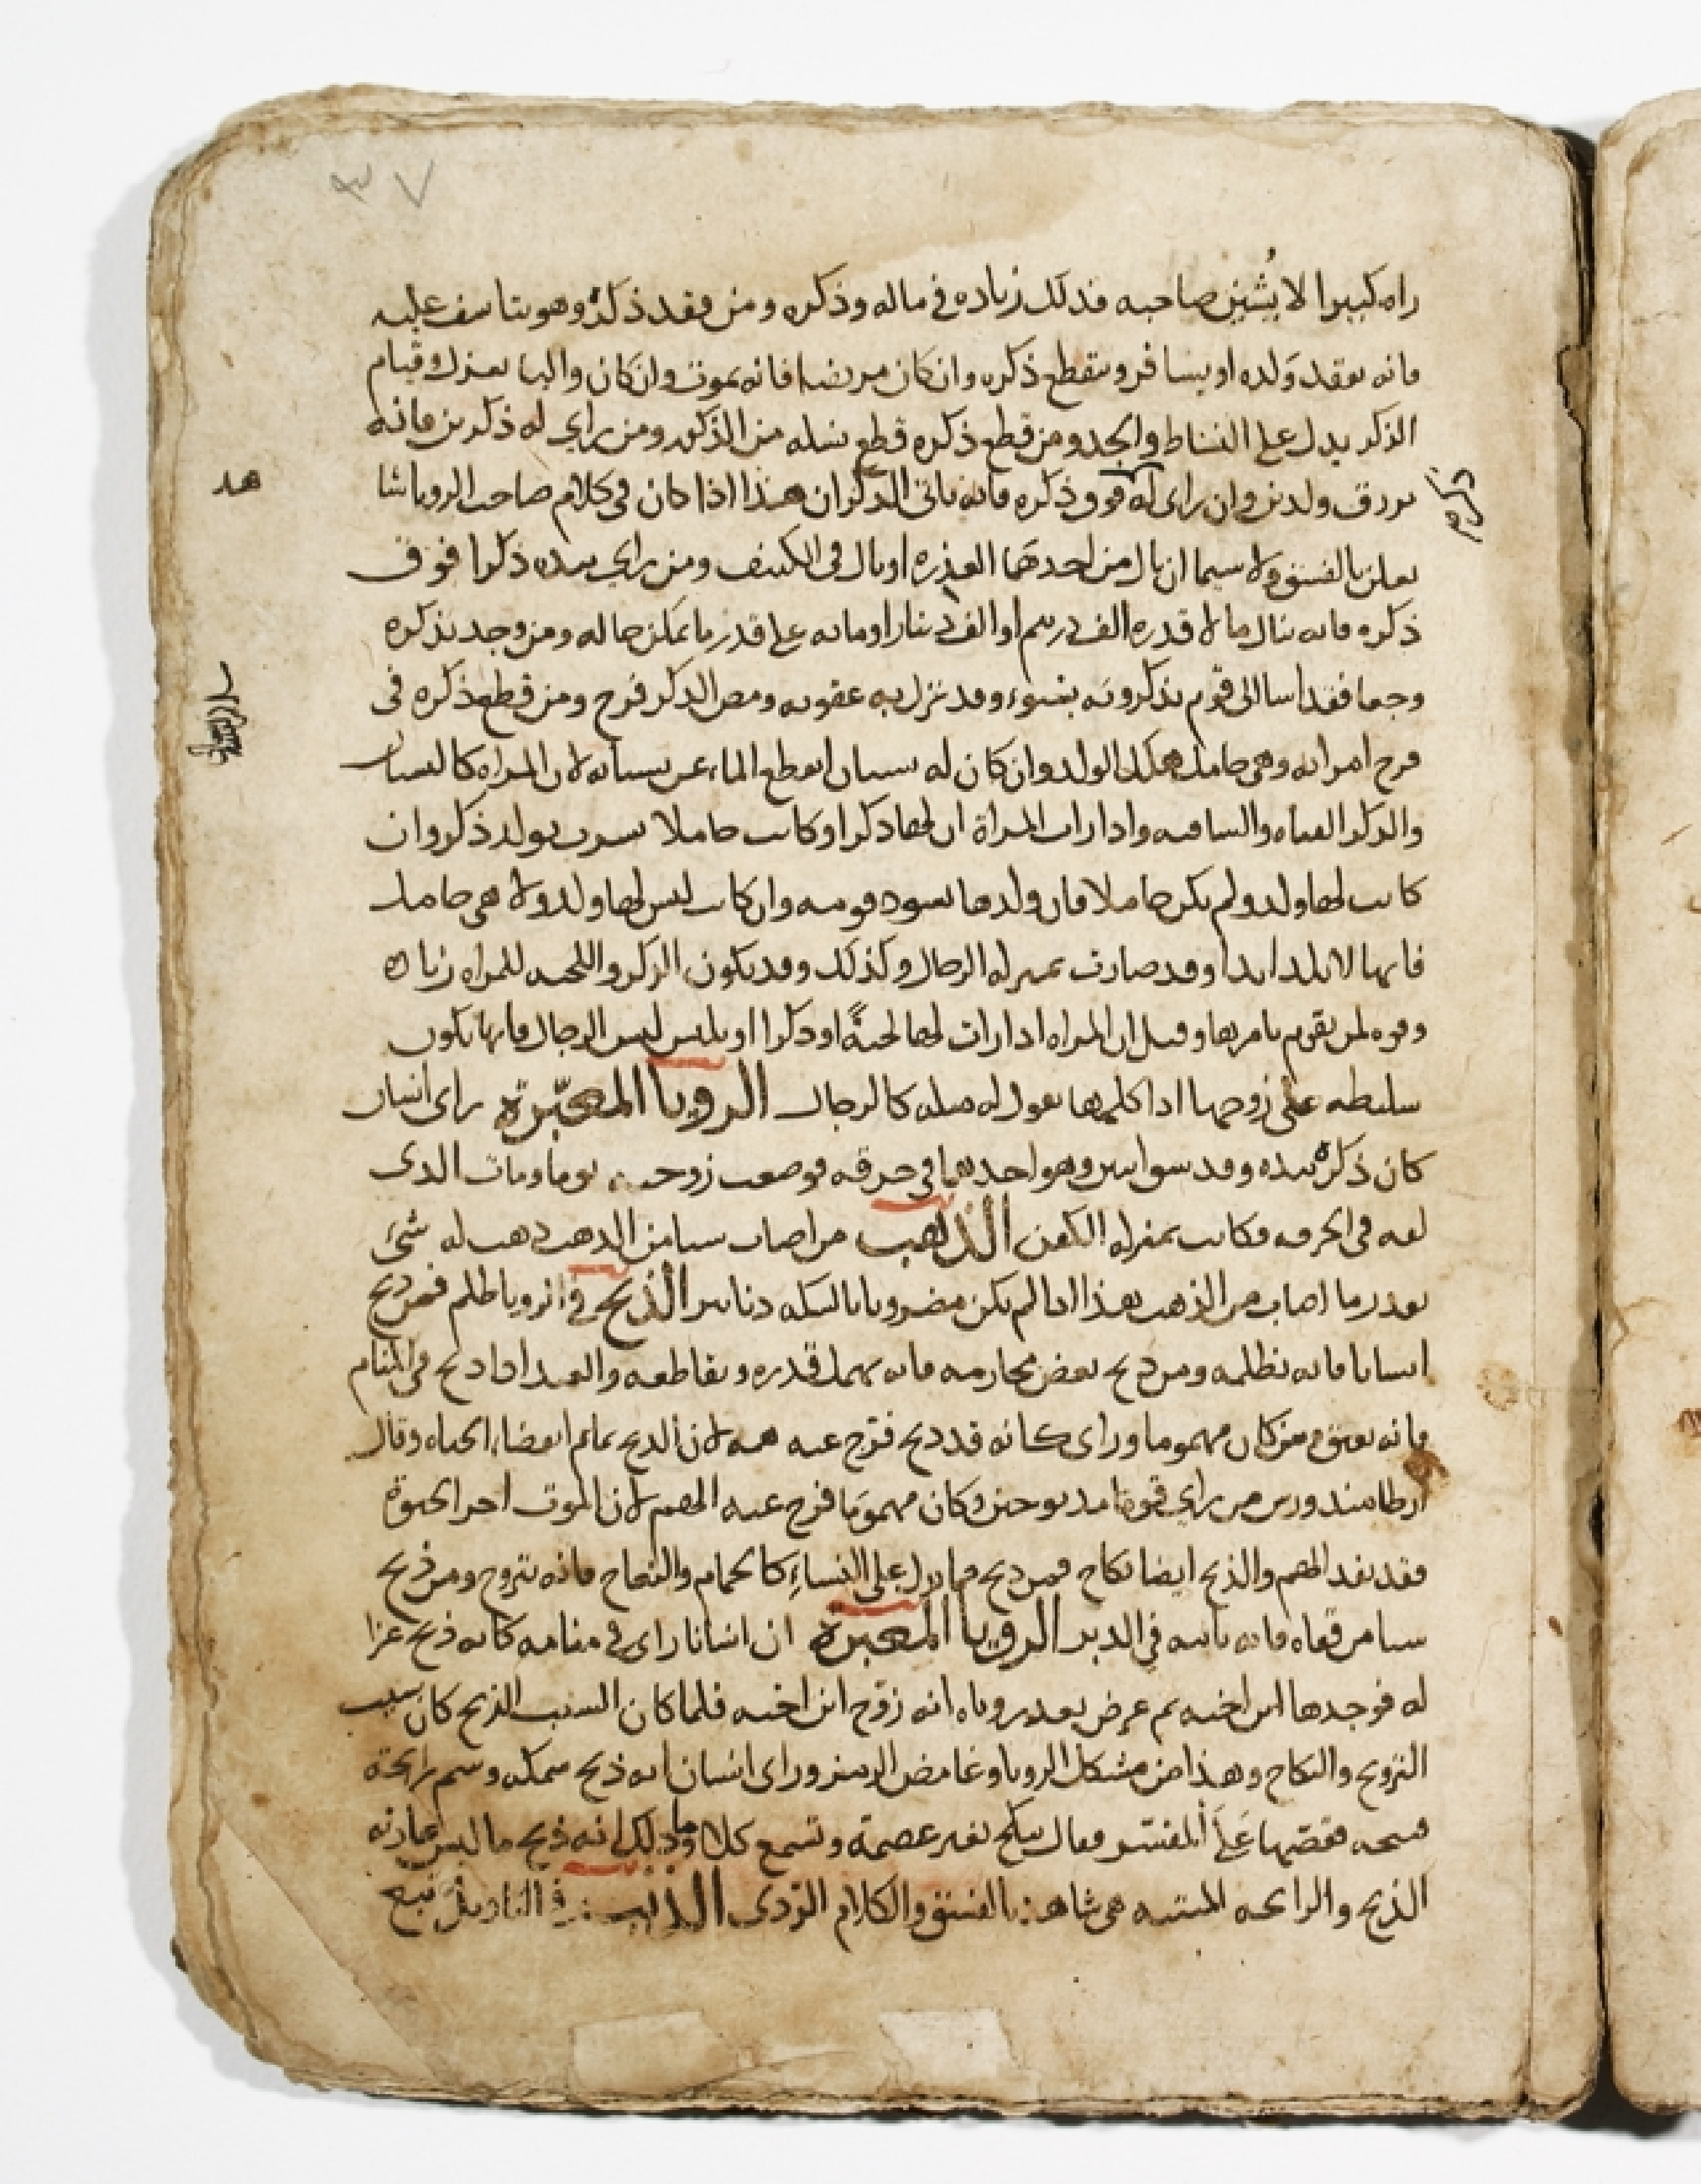 ٣٧
راه كبيرا لا يُشين صاحبه فذلك زياده في ماله وذكره ومن فقد ذكره وهو يتاسف عليه
فانه يفقد وَلده او يسافر وينقطع ذكره وان كان مريضا فانه يموت وان كان واليا يعزل وقيام
الذكر يدل على النشاط والجد ومن قطع ذكره قطع نسله من الذكور ومن راي له ذكرين فانه
يرزق ولدين وان راى له فوق ذكره فانه ياتى الذكران هذا اذا كان في كلام صاحب الرويا شا
يعلن بالفسق ولا سيما ان بال من احدهما العذره او بال فى الكنيف ومن راي بيده ذكرا فوق
ذكره فانه ينال مالا قدره الف درهم او الف دينار او مايه على قدر ما يمكن حاله ومن وجد بذكره
وجعا فقد اسا الى قوم يذكرونه بسوء وقد تنزل به عقوبه ومص الذكر فرح ومن قطع ذكره فى
فرج امراته وهى حامل هلك الولد وان كان له بستان انقطع الماء عن بستانه لان المراه كالبستان
والذكر القناه والساقيه واذا رات المراة ان لها ذكرا وكانت حاملا بشرت بولد ذكر وان
كانت لها ولد ولم تكن حاملا فان ولدها يسود قومه وان كانت ليس لها ولد ولا هى حامل
فانها لا تلد ابدا وقد صارت بمنزله الرجال وكذلك وقد يكون الذكر واللحيه للمراه زياده
وقوه لمن يقوم بامرها وقيل ان المراه اذا رات لها لحيةً او ذكرا او تلبس لبس الرجال فانها تكون
سليطه على زوجها اذا كلمها بقول له مثله كالرجال الرويا المعبّرة راى انسان
كان ذكره بيده وقد وهو احدهما في خرقه فوضعت زوجته توما ومات الذى
لفه فى الخرقه فكانت بمنزله الكفن الذهب من اصاب شيا من الذهب ذهب له شئ
بقدر ما اصاب من الذهب هذا اذا لم يكن مضروبا بالسكه دنانير الذبح في الرويا ظلم فمن ذبح
انسانا فانه يظلمه ومن ذبح بعض محارمه فانه يهمل قدره ويقاطعه والعبد اذا ذبح فى المنام
فانه يعتق ومن كان مهموما وراى كانه قد ذبح فرج عنه همه لان الذبح تمام انقضاء الحياه وقال
ارطاميدورس من راي قوما مذبوحين وكان مهمومًا فرج عنه الهم لان الموت اخر الحيوة
فقد نفد الهم والذبح ايضا نكاح فمن ذبح مما يدل على النساء كالحمام والنعاج فانه يتزوج ومن ذبح
شيا من قفاه فانه ياتيه في الدبر الرويا المعبرة ان انسانا راى في منامه كانه ذبح عنزا
له فوجدها ابن اخيه ثم عرض بعد روياه انه زوج ابن اخيه فلما كان السبب الذبح كان سبب
التزويج والنكاح وهذا من مشكل الرويا وغامض الرمز وراى انسان انه ذبح سمكه وشم رايحة
قبيحه فقصّها عَلَى المفسر فقال ينكح بغير عصمة وتسمع كلاما وذلك انه ذبح ما ليس عادته
الذبح والرايحه المنتنه هى شاهد بالفسق والكلام الردى الذيب في التاويل سبع